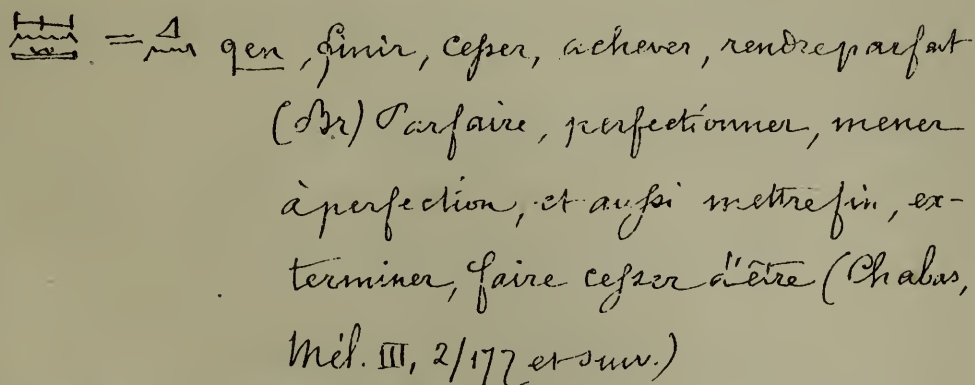 = qen, finir, cesser, achever, rendre parfait
(Br) Parfaire, perfectionner, mener
à perfection, et aussi mettre fin, ex-
terminer, faire cesser d'être (Chabas,
Mél. III, 2/177 et suiv.)